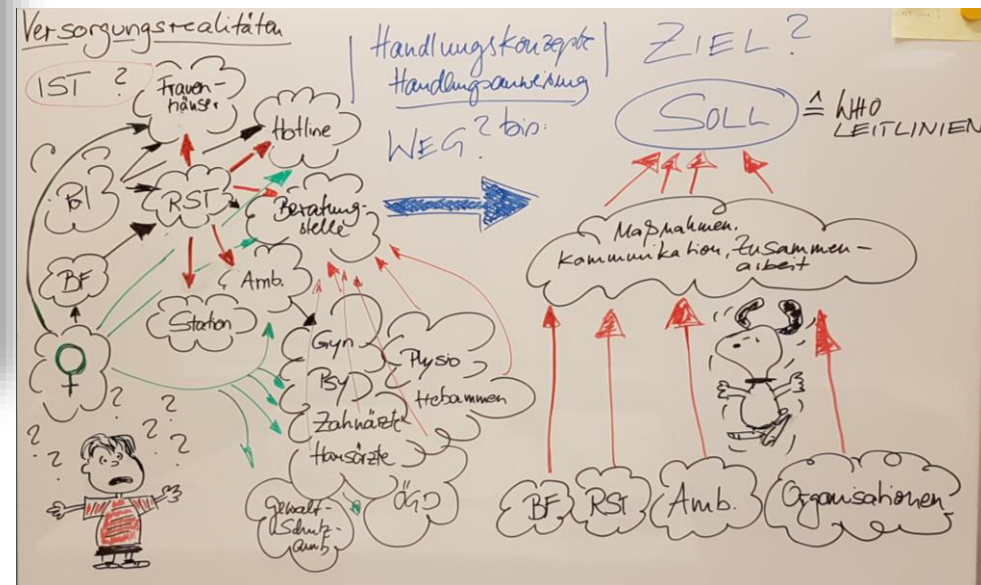 Versorgungsrealitäten
IST ?
Frauen-
häuser
Hotline
BI
RST
Beratung-
stelle
BF
Amb.
Station
♀
Gyn
Psy
Zahnärzte
Hausärzte
Physio
Hebammen
ÖGD
Gewalt-
Schutz-
amb.
? ? ? ? ? ? ?
Handlungskonzepte
Handlungsanweisung
WEG? bis:
ZIEL?
SOLL ≙ WHO
LEITLINIEN
Maßnahmen,
Kommunikation, Zusammen-
arbeit
BF RST Amb. Organisationen